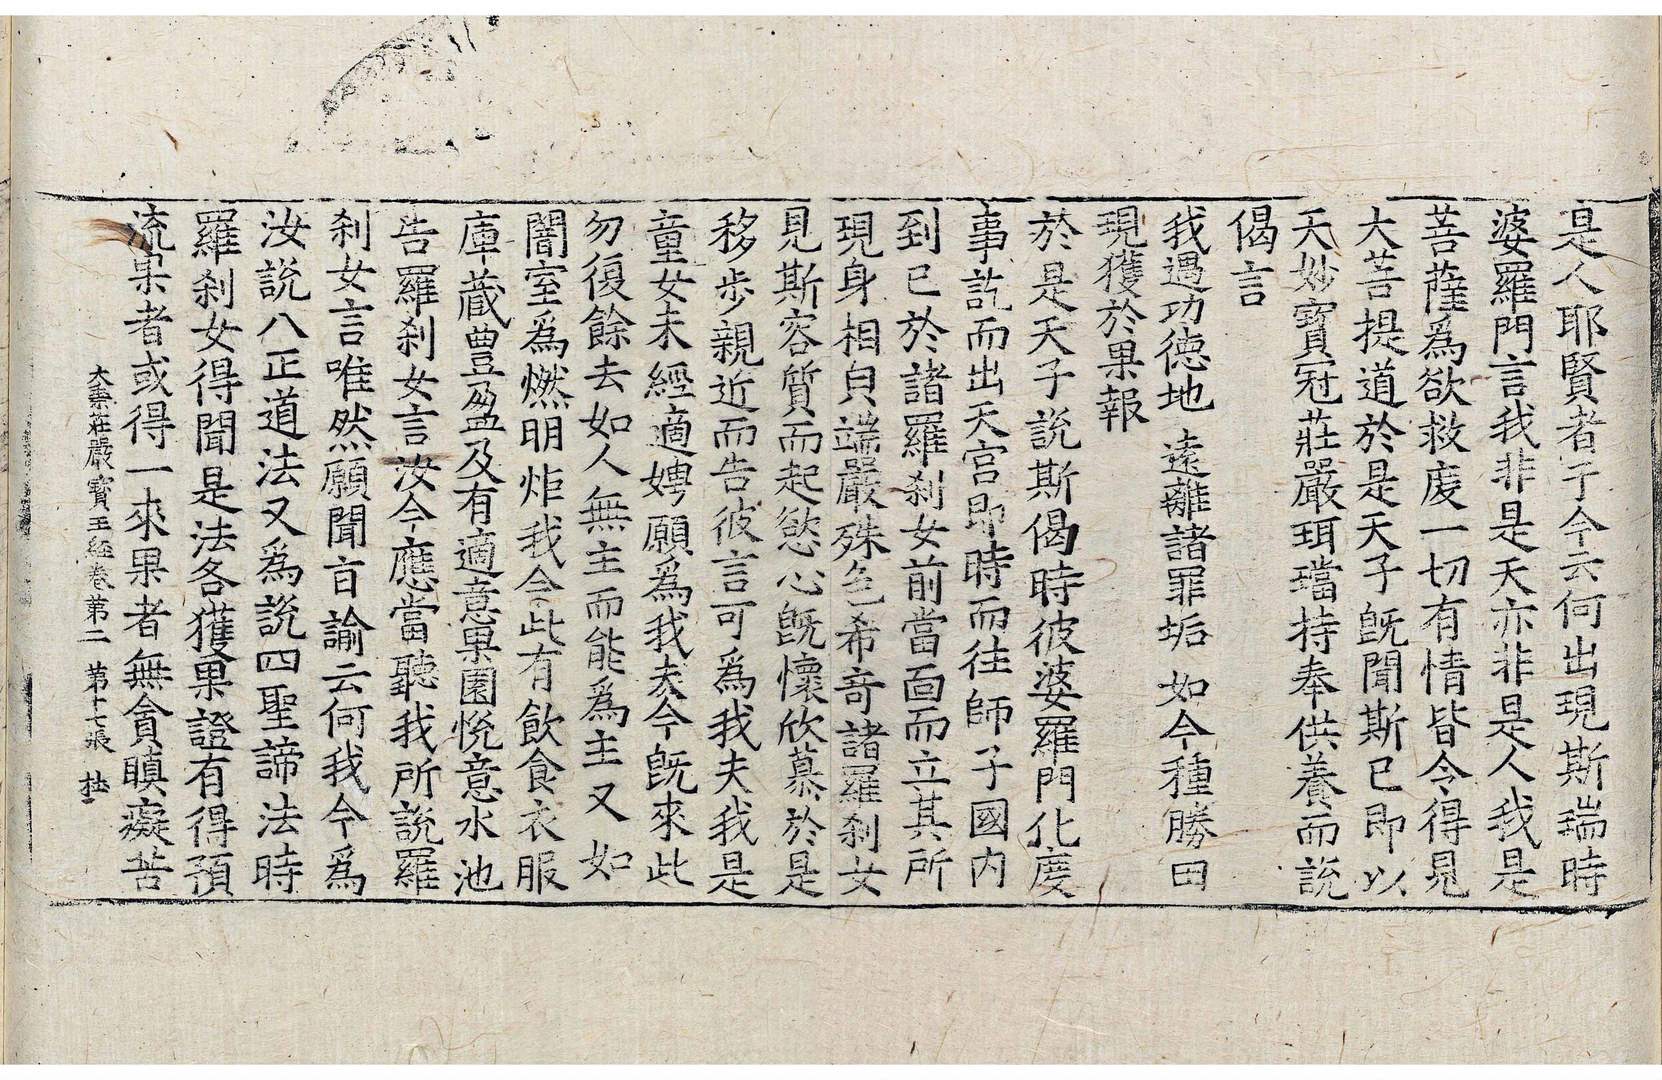 是人耶賢者于今云何出現斯瑞時
婆羅門言我非是天亦非是人我是
菩薩爲欲救度一切有情皆令得見
大菩提道於是天子旣聞斯已即以
天妙寶冠莊嚴珥璫持奉供養而說
偈言
我遇功德地 遠離諸罪垢 如今種勝田
現獲於果報
於是天子說斯偈時彼婆羅門化度
事訖而出天宮即時而往師子國內
到已於諸羅剎女前當面而立其所
現身相皃端嚴殊色希奇諸羅剎女
見斯容質而起慾心旣懷欣慕於是
移步親近而告彼言可爲我夫我是
童女未經適娉願爲我夫今旣來此
勿復餘去如人無主而能爲主又如
闇室爲燃明炬我今此有飲食衣服
庫藏豊盈及有適意果園悅意水池
告羅剎女言汝今應當聽我所說羅
剎女言唯然願聞旨諭云何我今爲
汝說八正道法又爲說四聖諦法時
羅剎女得聞是法各獲果證有得預
流果者或得一來果者無貪瞋癡苦
大乘莊嚴寶王經卷第二 第十七張 㧞